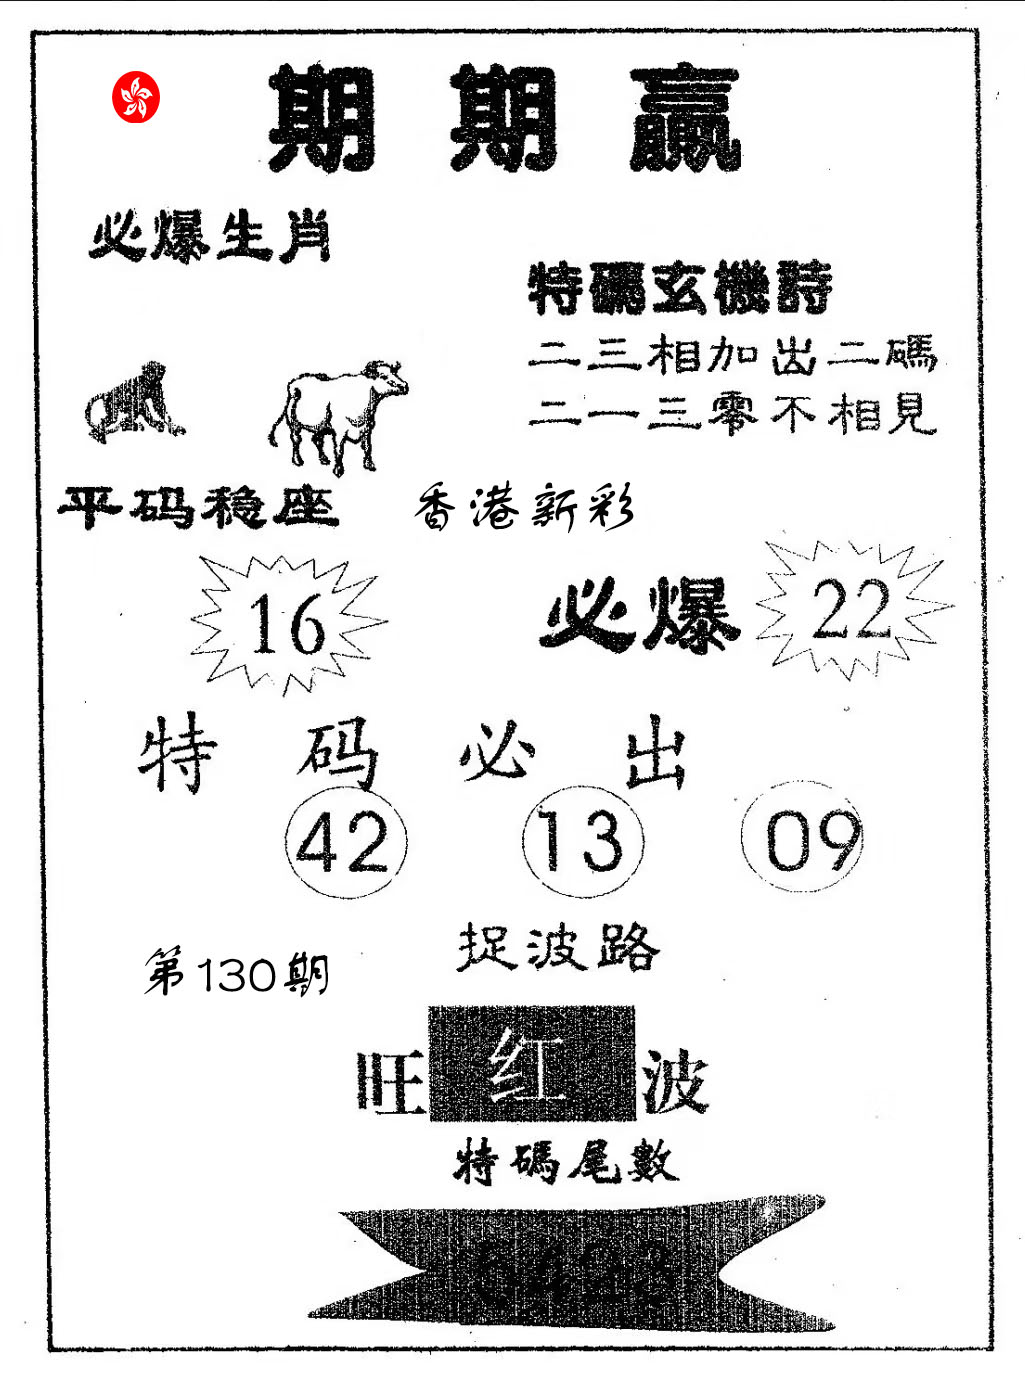 期期贏
必爆生肖
特碼玄機詩
二三相加出二碼
二一三零不相見
平码稳座
香港新彩
16
必爆
22
特码必出
42 13 09
捉波路
第130期
旺红波
特碼尾數